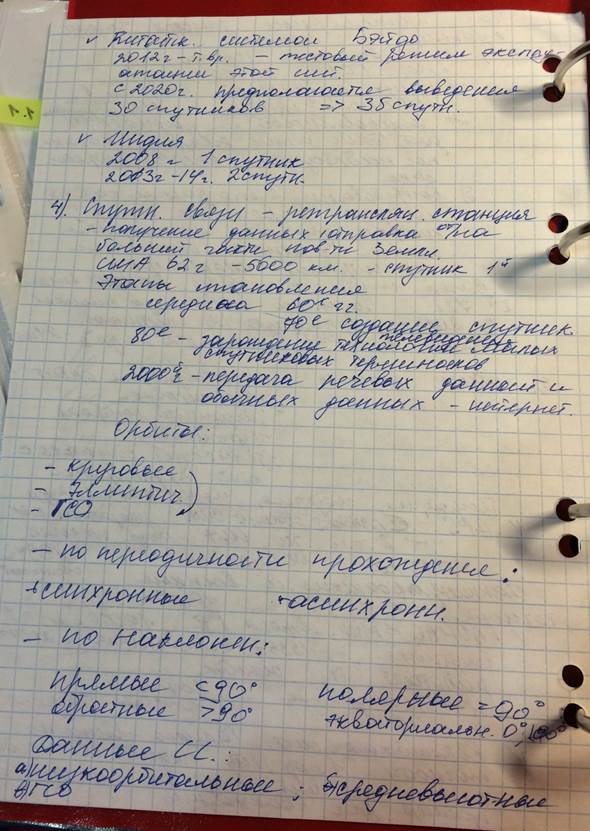 1.1.
v Китайск. система Бэйдо
2012г – т.вр. – тестовый режим эксплу-
атации этой сист.
с 2020г. предполагается выведения
30 спутников => 35 спутн.
v Индия
2008 г 1 спутник
2013г–14г. 2 спутн.
4). Спутн. связи – ретрансляц. станция
– получение данных /отправка от/на
большей части пов-ти Земли.
США 62 г – 5600 км. – спутник 1й
Этапы становления
середина 60х гг.
70е создание спутник.
телевидения
80е – зарождение технологии малых
спутниковых терминалов
2000е – передача речевых данных и
обычных данных – интернет.
Орбиты:
– круговые
– эллиптич.
– ГСО
– по периодичности прохождения:
синхронные асинхронн.
– по наклонен.:
прямые <90° полярные =90°
обратные >90° экваториальн. 0°, 180°
Данные СС.:
а) низкоорбитальные; б) средневысотные
в) ГСО